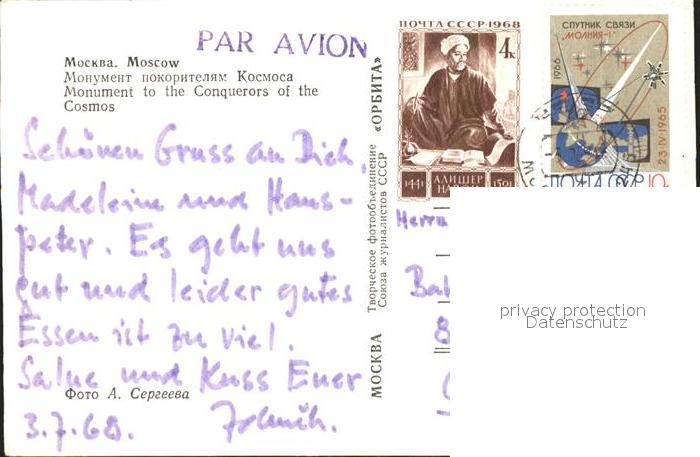 PAR AVION
Москва. Moscow
Монумент покорителям Космоса
Monument to the Conquerors of the
Cosmos
Schönen Gruss an Dich,
Madeleine und Hans-
peter. Es geht uns
gut und leider gutes
Essen ist zu viel.
Salue und Kuss Euer
Фото А. Сергеева
3.7.68.
Творческое фотообъединение «ОРБИТА»
Союза журналистов СССР
МОСКВА
ПОЧТА СССР·1968
4к
1441 АЛИШЕР 1501
СПУТНИК СВЯЗИ
„МОЛНИЯ-1"
1966
23 IV 1965
ПОЧТА СССР 10к
Herrn
8
privacy protection
Datenschutz